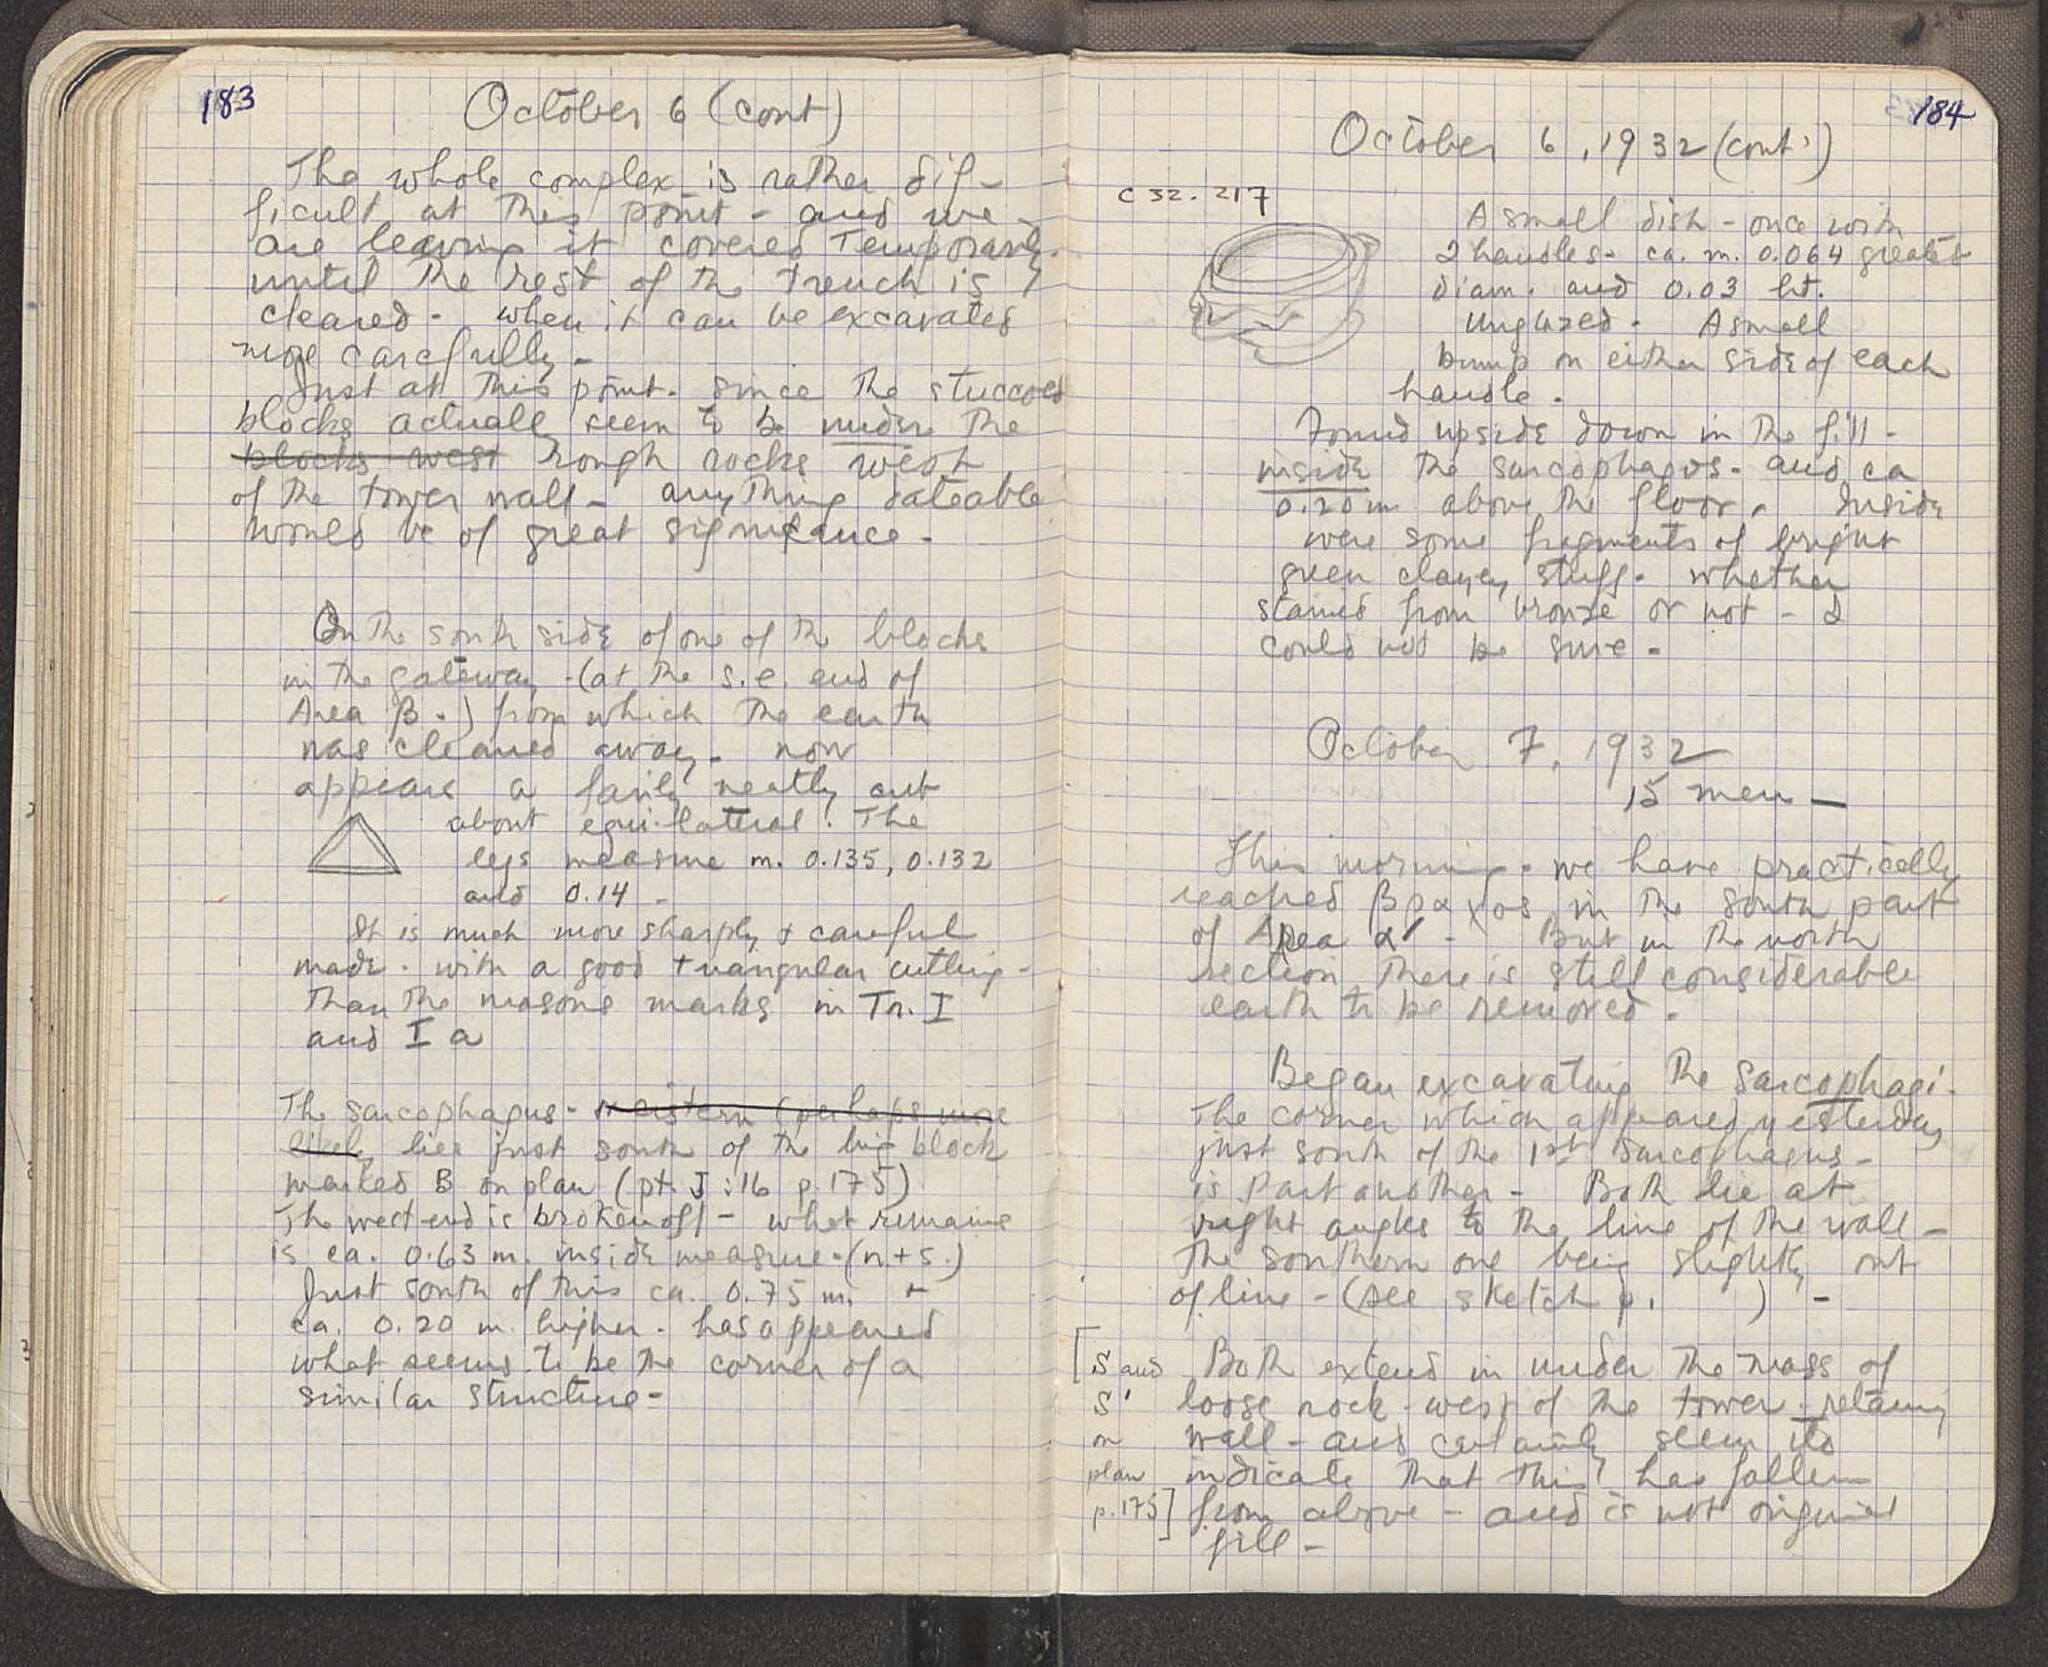 183
October 6 (cont)
The whole complex is rather dif-
ficult at this point - and we
are leaving it covered temporarily
until the rest of the trench is
cleared - when it can be excavated
more carefully -
Just at this point - since the stuccoed
blocks actually seem to be under the
blocks west rough rocks west
of the tower wall - anything dateable
would be of great significance -
On the south side of one of the blocks
in the gateway - (at the s.e. end of
Area β.) from which the earth
was cleaned away - now
appears a fairly neatly cut
about equi-lateral. The
legs measure m. 0.135, 0.132
and 0.14 -
It is much more sharply & careful
made - with a good triangular cutting -
than the masons marks in Tr. I
and I a
The sarcophagus - or cistern (perhaps more
likely lies just south of the big block
marked B on plan (pt. J:16 p. 175)
The west end is broken off - what remains
is ca. 0.63 m. inside measure - (n + s.)
Just south of this ca. 0.75 m. +
ca. 0.20 m. higher - has appeared
what seems to be the corner of a
similar structure -
184
October 6, 1932 (cont')
C 32. 217
A small dish - once with
2 handles - ca. m. 0.064 greatest
diam. and 0.03 ht.
Unglazed - A small
bump on either side of each
handle.
Found upside down in the fill -
inside the sarcophagus - and ca
0.20 m above the floor. Inside
were some fragments of bright
green clayey stuff - whether
stained from bronze or not - I
could not be sure -
October 7, 1932
15 men —
This morning - we have practically
reached βραχος in the south part
of Area α' - But in the north
section there is still considerable
earth to be removed.
Began excavating the sarcophagi.
The corner which appeared yesterday
just south of the 1st sarcophagus -
is part another - Both lie at
right angles to the line of the wall -
the southern one being slightly out
of line - (see sketch p. ) -
[S and
S'
on
plan
p. 175]
Both extend in under the mass of
loose rock west of the tower - retaining
wall - and certainly seem to
indicate that this has fallen
from above - and is not original
fill -